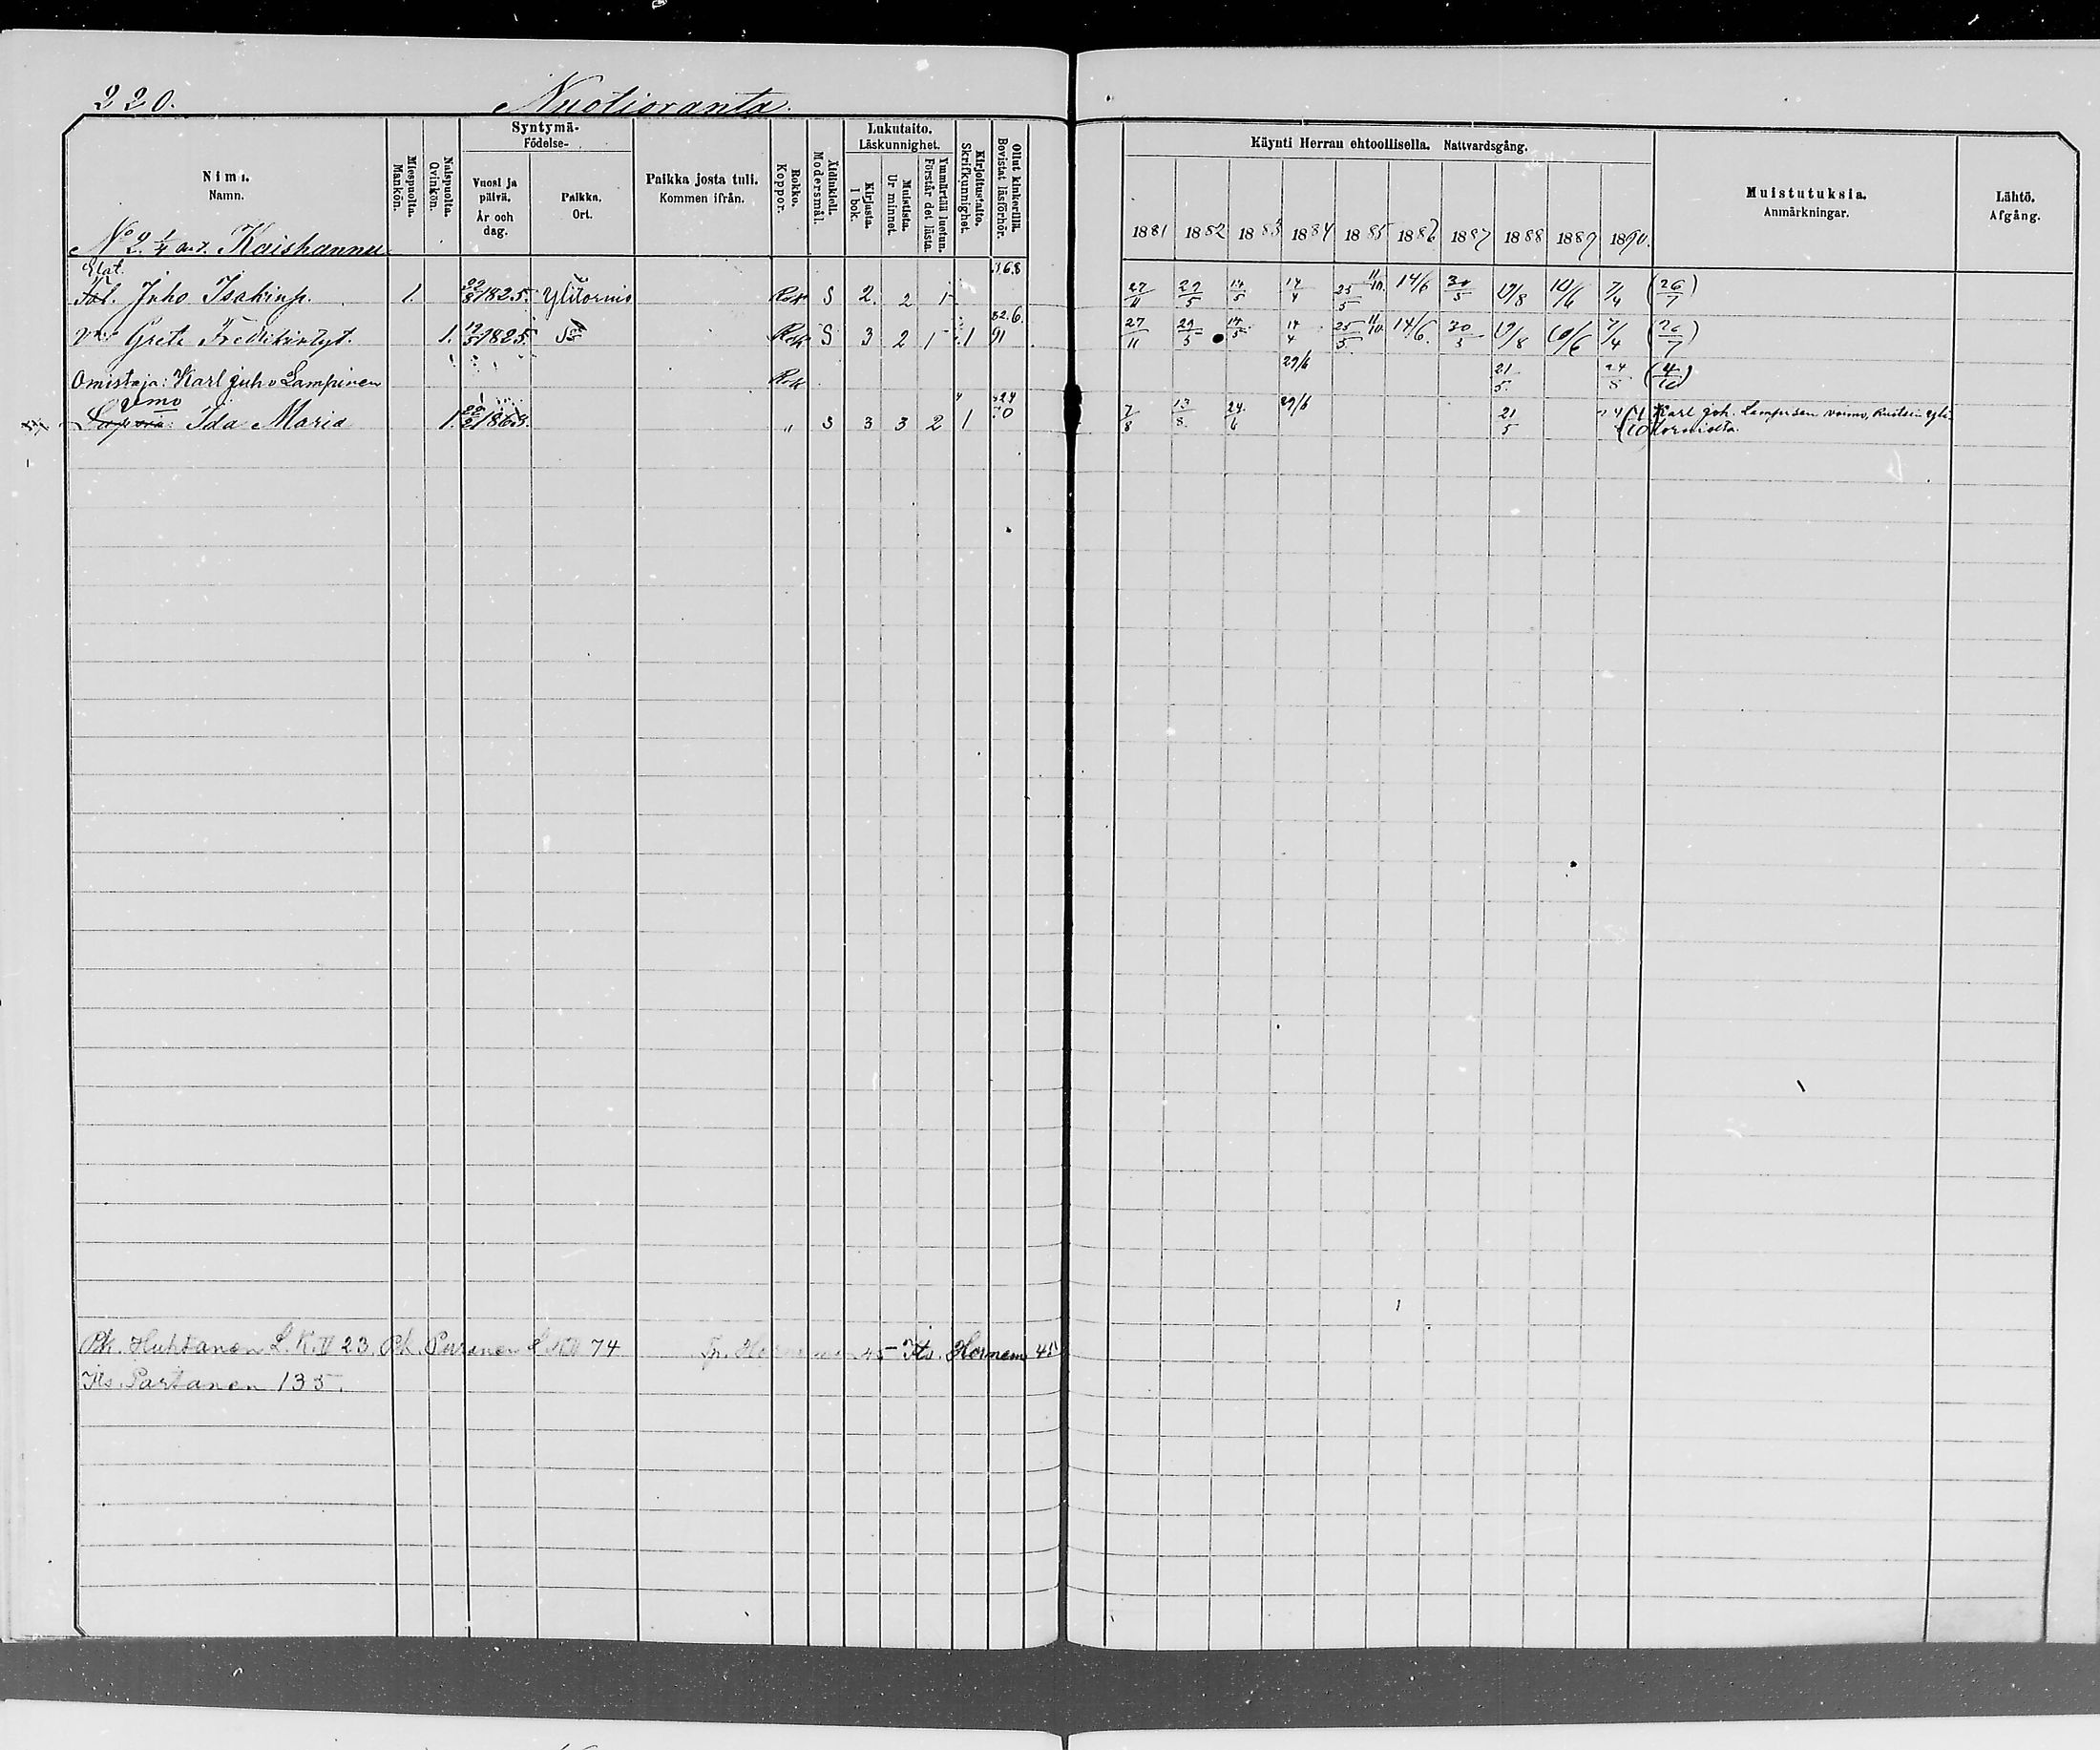 220. Nuotioranta.
Nimi. Namn.
Miespuolta. Mankön.
Naispuolta. Qvinkön.
Syntymä- Födelse-
Vuosi ja päivä. År och dag.
Paikka. Ort.
Paikka josta tuli. Kommen ifrån.
Rokko. Koppor.
Äidinkieli. Modersmål.
Lukutaito. Läskunnighet.
Kirjasta. I bok.
Muistista. Ur minnet.
Ymmärtää luetun. Förstår det lästa.
Kirjoitustaito. Skrifkunnighet.
Ollut kinkerillä. Bevistat läsförhör.
Käynti Herran ehtoollisella. Nattvardsgång.
1881 1882 1883 1884 1885 1886 1887 1888 1889 1890
Muistutuksia. Anmärkningar.
Lähtö. Afgång.
No 2. 1/4 Kaishannu
Elat.
Juho Isakinp. 1. 1825. Ylitornio Rok S 2. 2 1 27/11 29/5 14/5 14/4 25/5 11/10 14/6 30/5 19/8 10/6 7/4 (26/7)
Greta Fredrikintyt. 1. 1825 Rok S 3 2 1 1 91 27/11 29/5 14/5 14/4 25/5 11/10 14/6. 30/5 19/8 10/6 7/4 (26/7)
Omistaja: Karl Juho Lampinen Rok 29/6 21/5 24/8 (4/10)
Vmo
Ida Maria 1. 1863. " S 3 3 2 1 7/8 13/8 24/6 29/6 21/5 Karl Joh. Lampisen vaimo,
Pk. Huhtanen L.K. II 23. Pk. Puranen L.K. II 74 45 Its. Hornem 45
Its. Partanen 135.